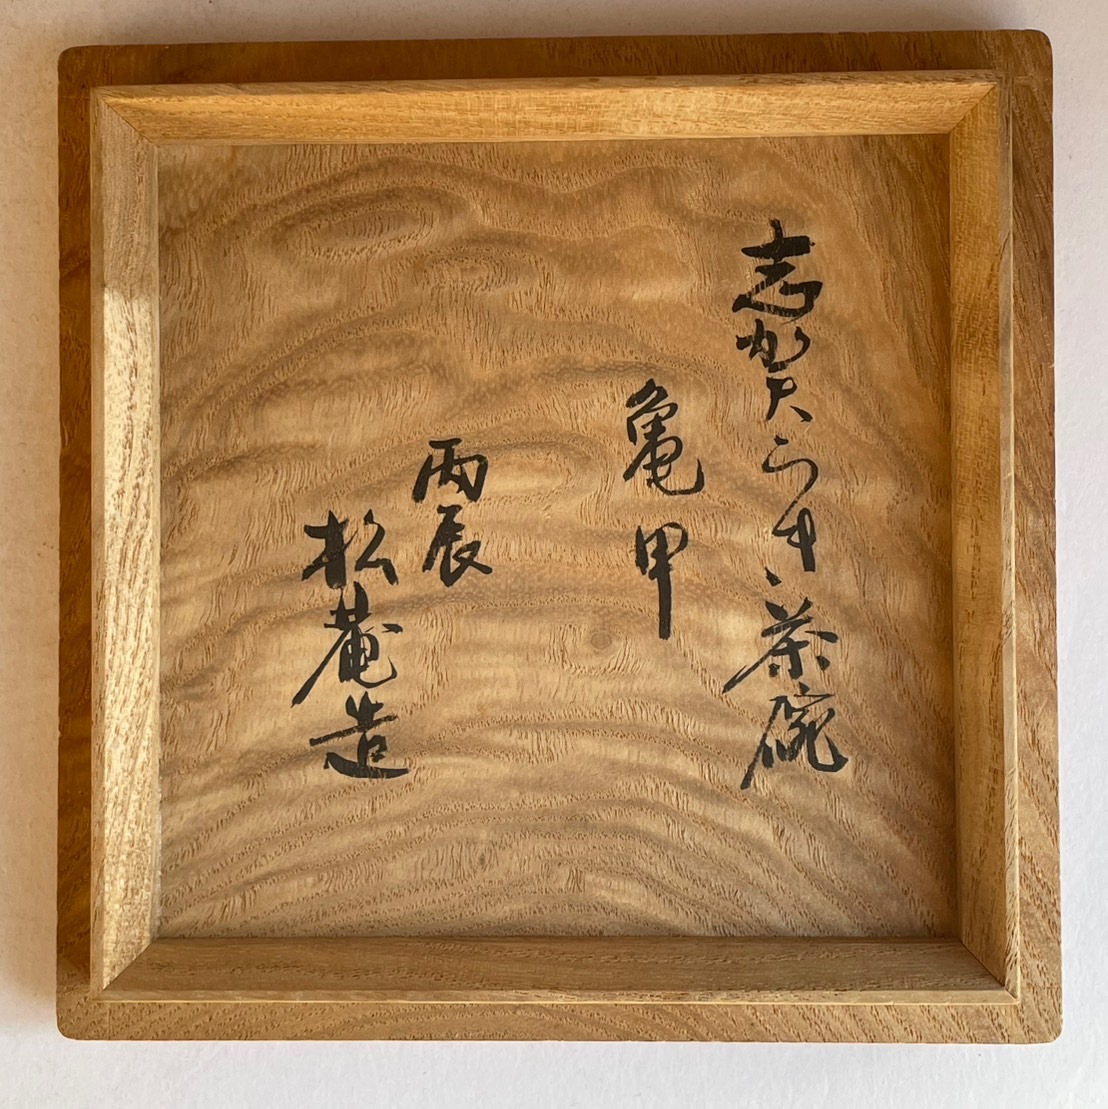 志賀らき茶碗
亀甲
丙辰
松菴造